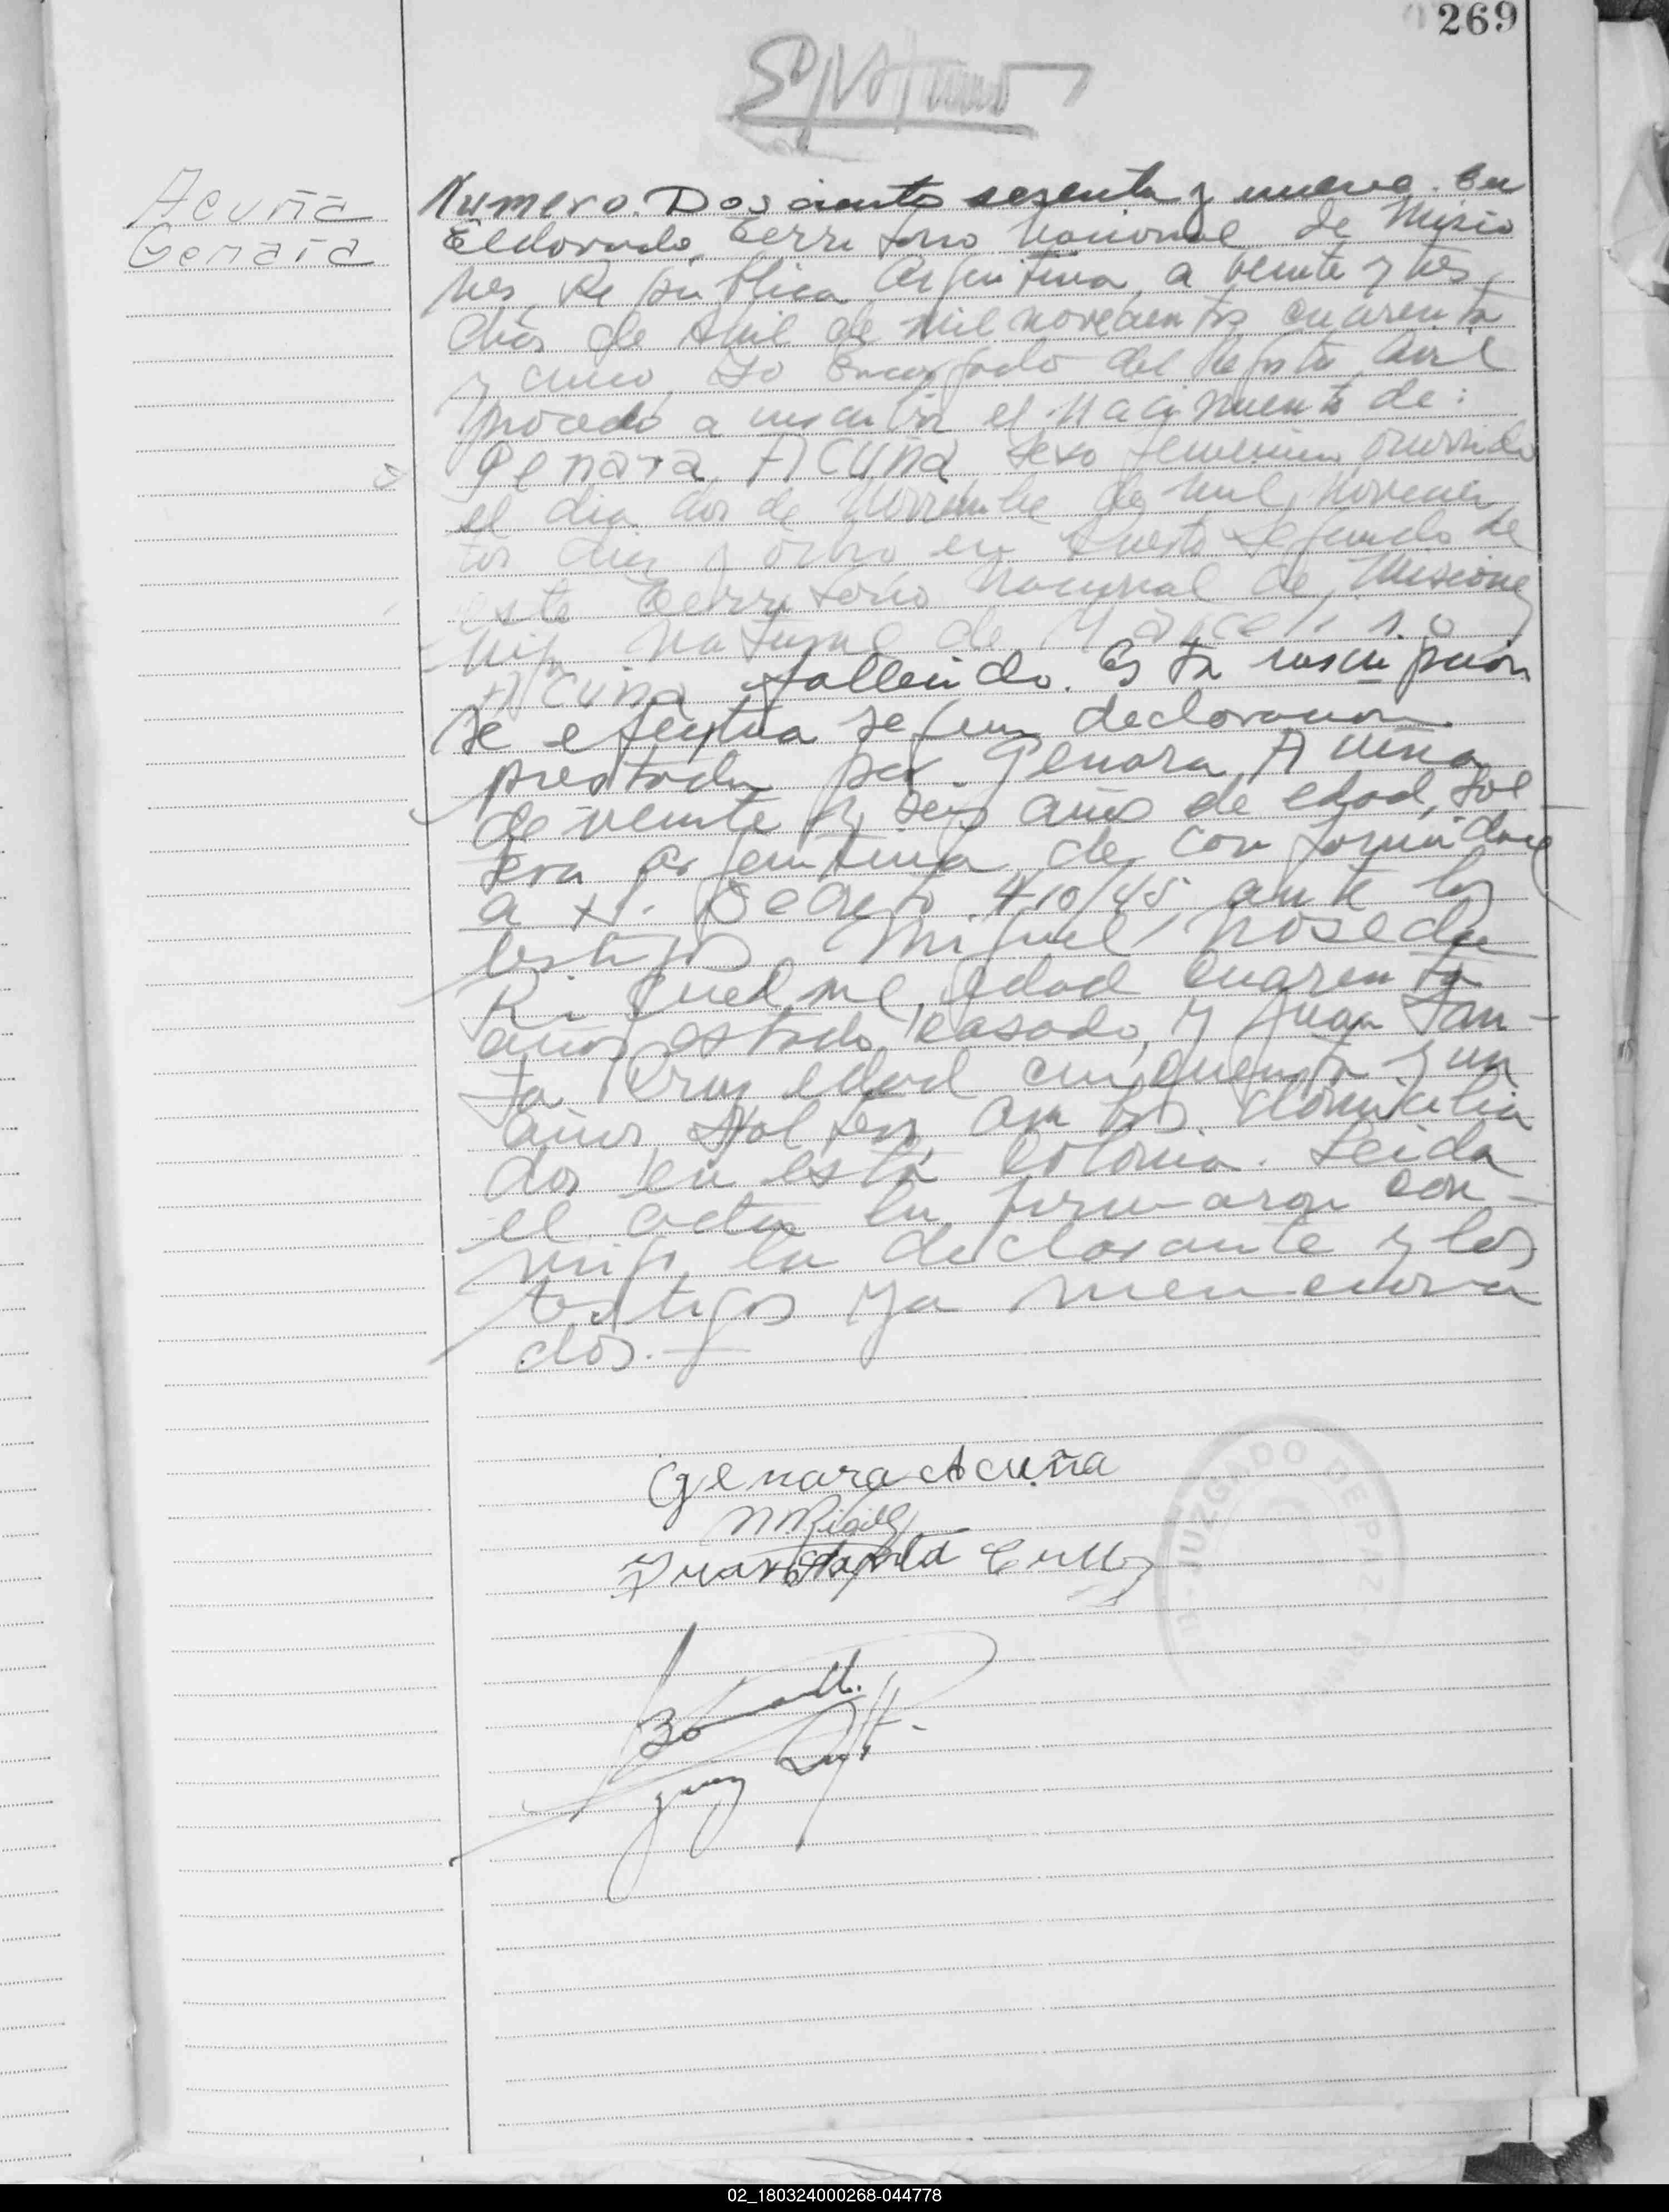 269
Acuña
Genara
Numero. Doscientos sesenta y nueve. En
Eldorado, Territorio Nacional de Misio
nes, Republica Argentina, a veinte y tres
dias de Abril de mil novecientos cuarenta
y cinco, Yo Encargado del Registro Civil
procedo a inscribir el nacimiento de:
Genara ACUÑA sexo femenino ocurrido
el dia dos de Noviembre de mil novecien
tos diez y ocho en Puerto Segundo de
este Territorio Nacional de Misiones
hija natural de Marcelino
Acuña fallecido. Esta inscripcion
se efectua segun declaracion
prestada por Genara Acuña
de veinte y seis años de edad, sol
tera argentina de conformidad
a Decreto 410/45 ante los
testigos Miguel Noseda
Riquelme, edad cuarenta
años estado casado, y Juan San-
ta Cruz edad cincuenta y un
años soltero, ambos domicilia
dos en esta Colonia. Leida
el acta la firmaron con-
migo la declarante y los
testigos ya menciona
dos.
Genara Acuña
Juan Santa Cruz
JUZGADO DE PAZ
02_180324000268-044778